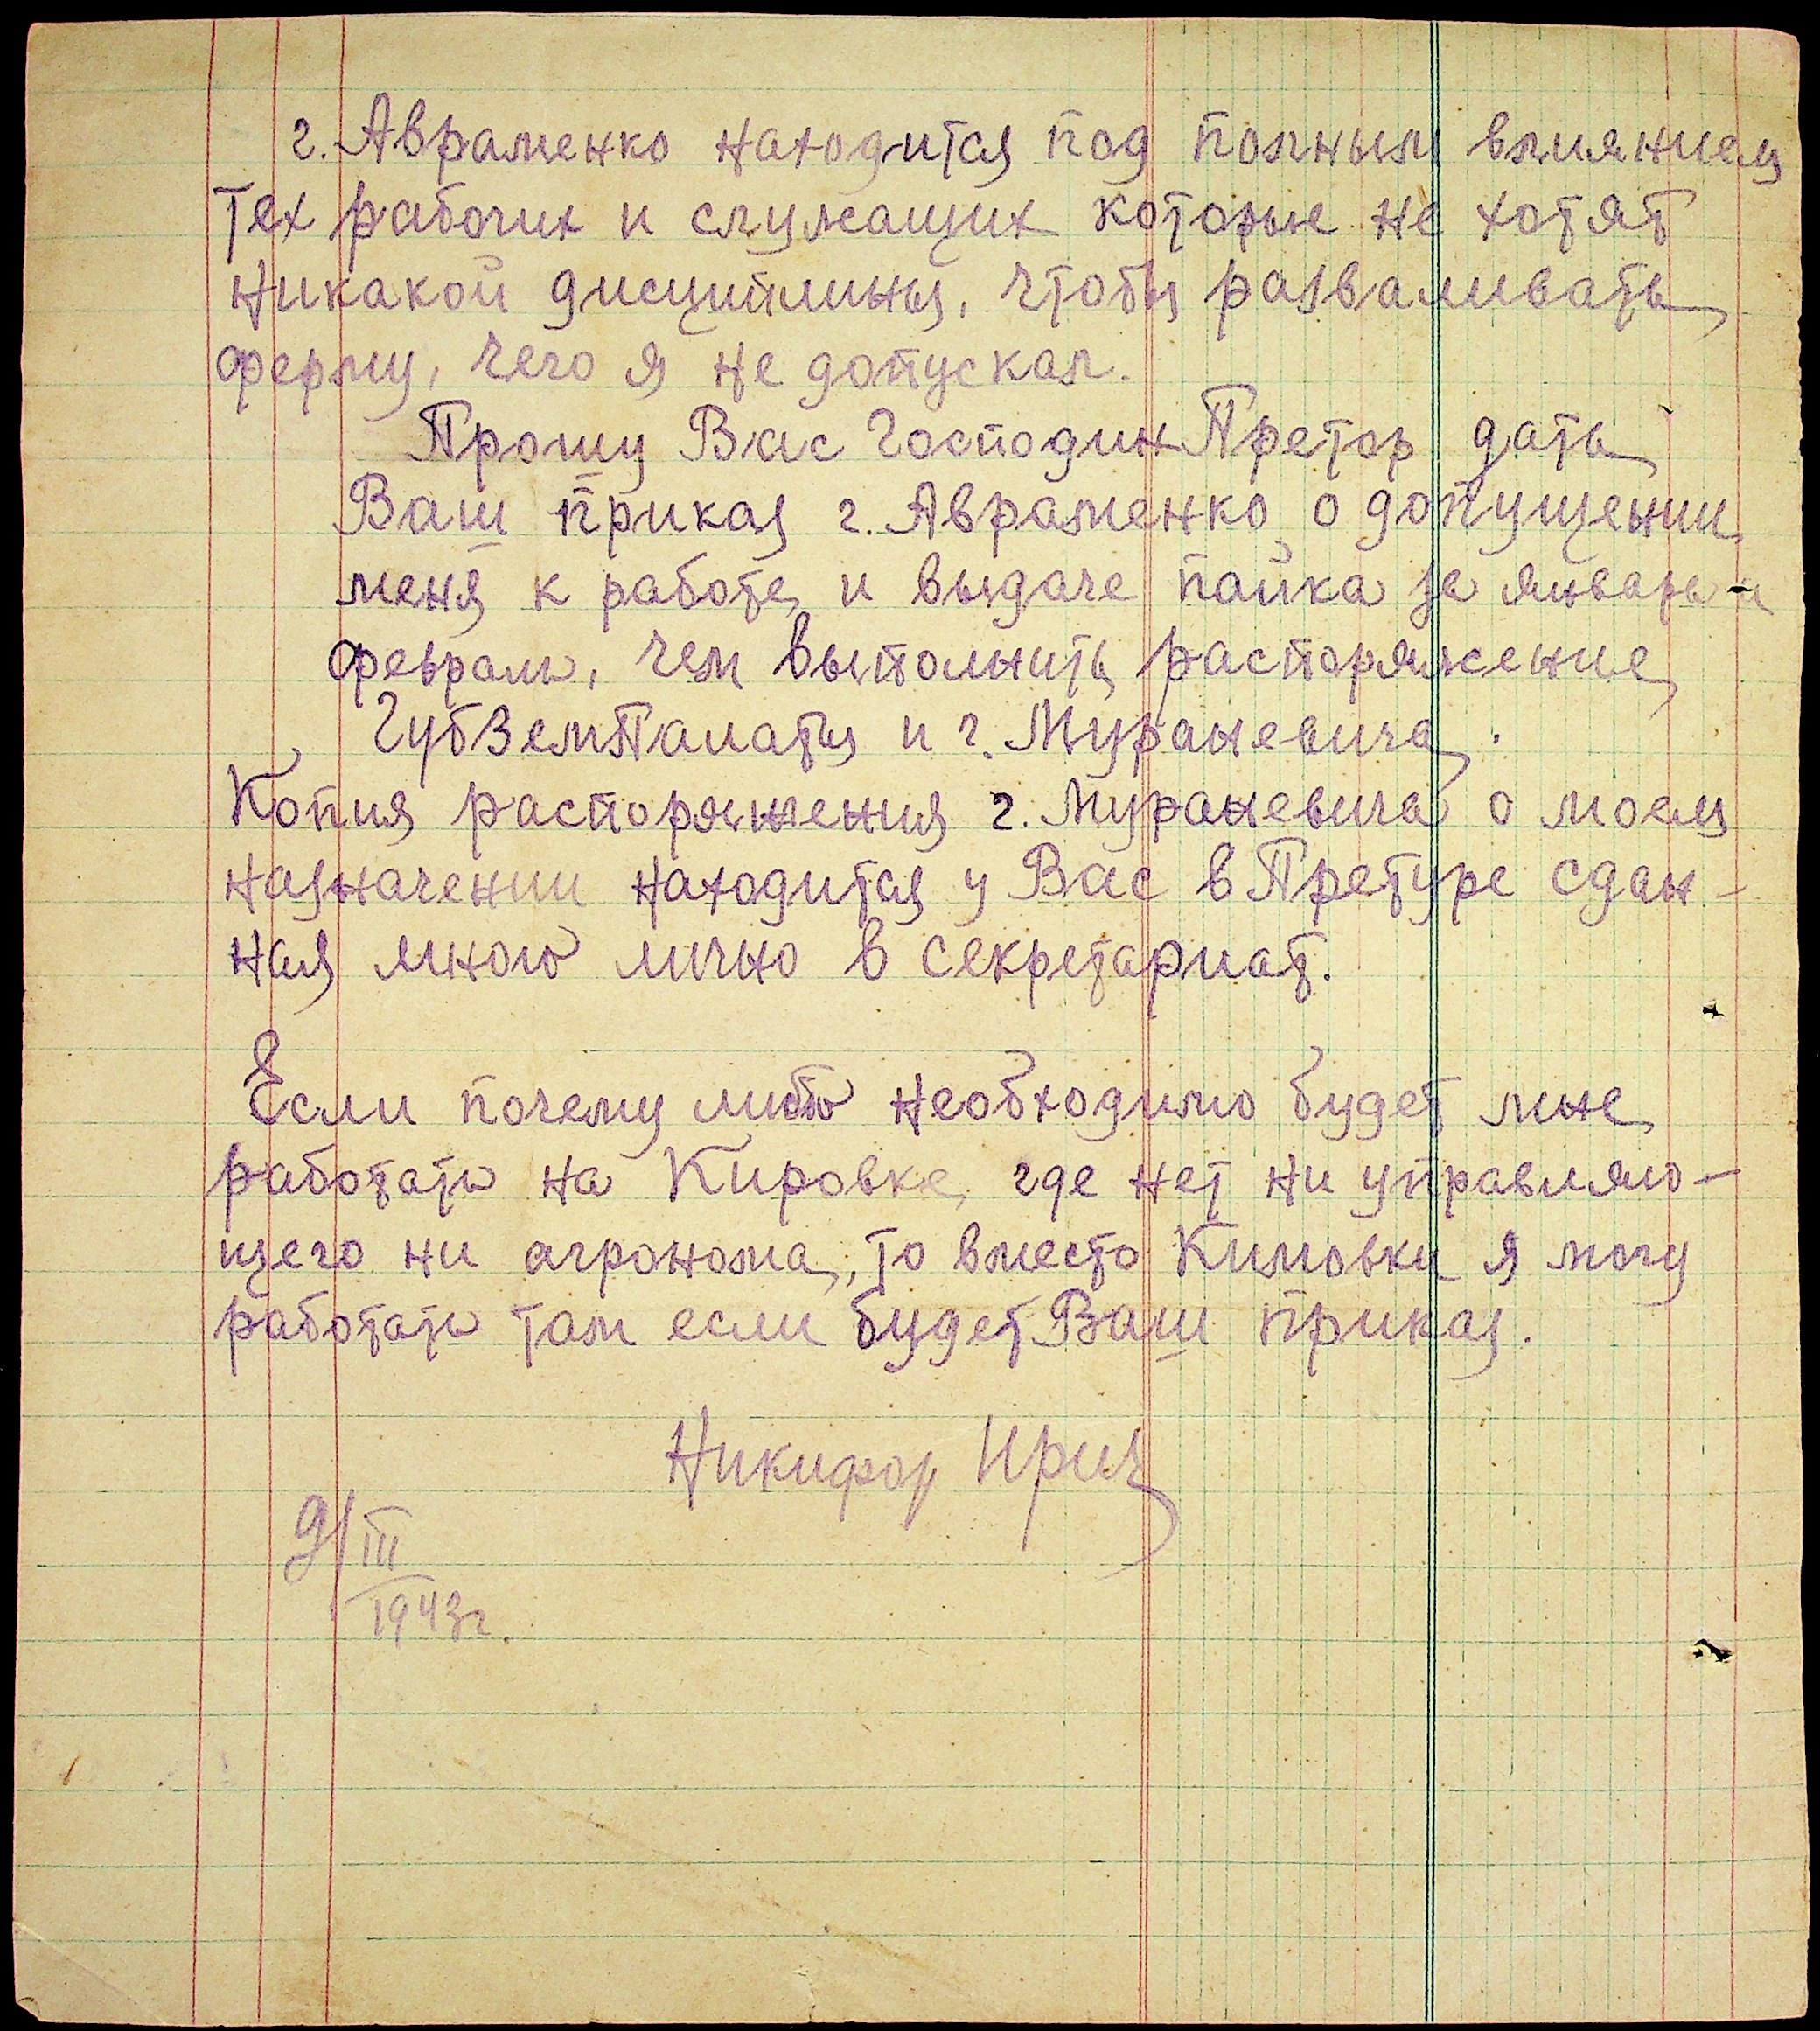 г. Авраменко находится под полным влиянием
тех рабочих и служащих которые не хотят
никакой дисциплины, чтобы разваливать
ферму, чего я не допускал.
Прошу Вас Господин Претор дать
Ваш приказ г. Авраменко о допущении
меня к работе и выдаче пайка за январь и
февраль, чем выполнить распоряжение
ГубЗемПалаты и г. Мураневича.
Копия распоряжения г. Мураневича о моем
назначении находится у Вас в Претуре сдан-
ная мною лично в секретариат.
Если почему либо необходимо будет мне
работать на Кировке, где нет ни управляю-
щего ни агронома, то вместо Кимовки я могу
работать там если будет Ваш приказ.
Никифор
9/III
1943г.